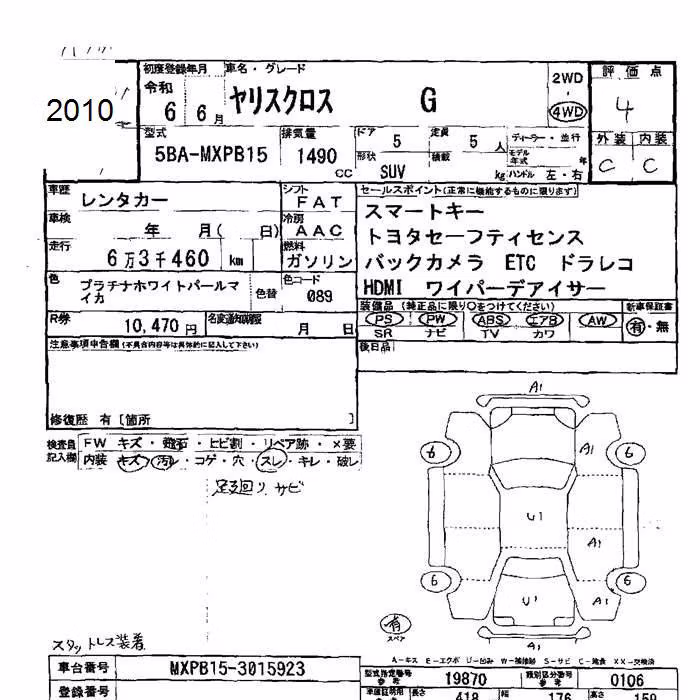 2010
初度登録年月 車名・グレード
令和
6 6月 ヤリスクロス G
2WD
4WD
評価点
4
外装 内装
C C
型式 排気量 ドア 5 定員 5人 ディーラー・並行
5BA-MXPB15 1490 CC
モデル年式 年
形状 SUV 積載 kg ハンドル 左・右
車歴 レンタカー
シフト FAT
車検 年 月( 日)
冷房 AAC
走行 6万3千460 km
燃料 ガソリン
色 プラチナホワイトパールマ
イカ
色替
色コード 089
R券 10,470円
月 日
セールスポイント(正常に機能するものに限ります)
スマートキー
トヨタセーフティセンス
バックカメラ ETC ドラレコ
HDMI ワイパーデアイサー
装備品 (純正品に限り○をつけてください) 新車保証書
PS PW ABS エアB AW 有・無
SR ナビ TV カワ
後日品
注意事項申告欄(不具合内容等は具体的に記入して下さい)
修復歴 有 [箇所 ]
検査員
記入欄
FW キズ・飛石・ヒビ割・リペア跡・×要
内装 キズ・汚レ・コゲ・穴・スレ・キレ・破レ
足廻り サビ
A1
6 A1 6
U1
A1
6 6
U1 A1
有
スペア
A1
スタットレス装着
A-キズ E-エクボ U-凹み W-補修跡 S-サビ C-腐食 XX-交換済
車台番号 MXPB15-3015923
型式指定番号 参考 19870 類別区分番号 参考 0106
登録番号
長さ 418 幅 176 高さ 159